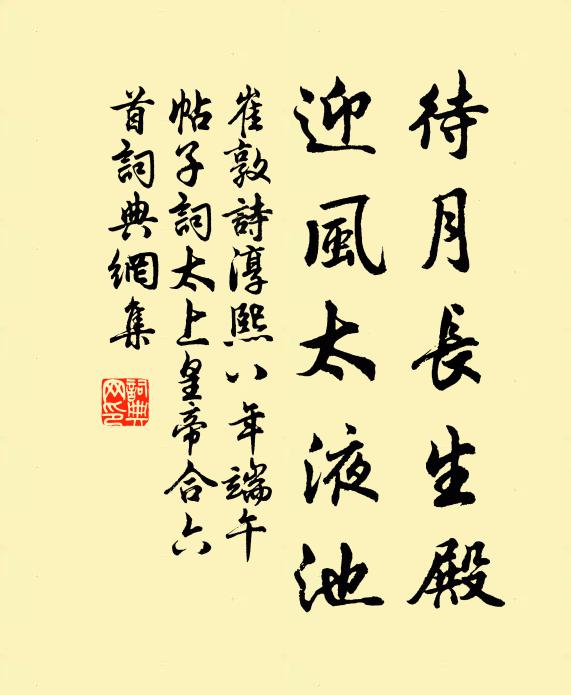 待月長生殿
迎風太液池
崔敦詩淳熙八年端午
帖子詞太上皇帝合六
首詞典網集
詞典网印